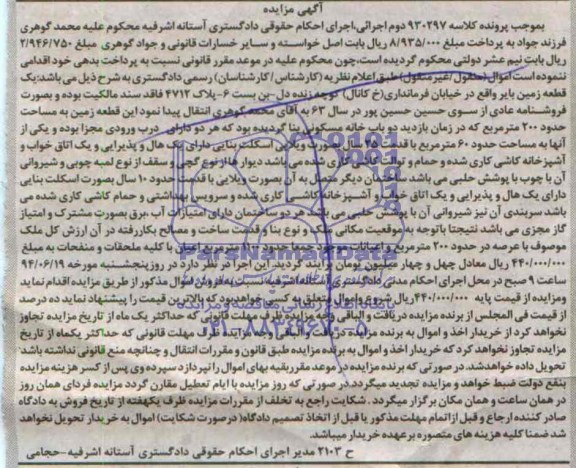 آگهی مزایده
بموجب پرونده کلاسه ۹۳۰۲۹۷ دوم اجرائی،اجرای احکام حقوقی دادگستری آستانه اشرفیه محکوم علیه محمد گوهری
فرزند جواد به پرداخت مبلغ ۸/۹۳۵/۰۰۰ ریال بابت اصل خواسته و سایر خسارات قانونی و جواد گوهری مبلغ ۲/۹۴۶/۷۵۰
ریال بابت نیم عشر دولتی محکوم گردیده است،چون محکوم علیه در موعد مقرر قانونی نسبت به پرداخت بدهی خود اقدامی
ننموده است اموال (منقول/غیرمنقول) طبق اعلام نظریه (کارشناس/کارشناسان) رسمی دادگستری به شرح ذیل می باشد:یک
قطعه زمین بایر واقع در خیابان فرمانداری(خ کانال) کوچه زنده دل-بن بست ۶-پلاک ۴۷۱۲ فاقد سند مالکیت بوده و بصورت
فروشنامه عادی از سوی حسین حسین پور در سال ۶۳ به آقای محمد گوهری انتقال پیدا نمود این قطعه زمین به مساحت
حدود ۲۰۰ مترمربع که در زمان بازدید دو باب خانه مسکونی بنا گردیده بود که هر دو دارای درب ورودی مجزا بوده و یکی از
آنها به مساحت حدود ۶۰ مترمربع با قدمت سال بصورت ویلایی اسکلت بنایی دارای یک هال و پذیرایی و یک اتاق خواب و
آشپزخانه کاشی کاری شده و حمام و توالت کاشی کاری شده می باشد دیوار ها از نوع گچی و سقف از نوع لمبه چوبی و شیروانی
آن با چوب با پوشش حلبی می باشد ساختمان دیگر متصل به آن بصورت ویلایی با قدمت حدود ۱۰ سال بصورت اسکلت بنایی
دارای یک هال و پذیرایی و یک اتاق خواب و آشپزخانه کاشی کاری شده و سرویس بهداشتی و حمام کاشی کاری شده می
باشد سربندی آن نیز شیروانی آن با پوشش حلبی می باشد هر دو ساختمان دارای امتیازات آب ،برق بصورت مشترک و امتیاز
گاز مجزی می باشد نتیجتا باتوجه به موقعیت مکانی ملک و نوع بنا و قدمت ساخت و مصالح بکاررفته در آن ارزش کل ملک
موصوف با عرصه در حدود ۲۰۰ مترمربع و اعیانات موجود جمعا حدود ۱۰۰ مترمربع اعیان با کلیه ملحقات و منفحات به مبلغ
۴۴۰/۰۰۰/۰۰۰ ریال معادل چهل و چهار میلیون تومان برآیند گردید. این اجرا در نظر دارد در روز پنجشنبه مورخه ۹۴/۰۶/۱۹
ساعت ۹ صبح در محل اجرای احکام مدنی دادگستری آستانه اشرفیه نسبت به فروش اموال مذکور از طریق مزایده اقدام نماید
ومزایده از قیمت پایه ۴۴۰/۰۰۰/۰۰۰ریال شروع واموال متعلق به کسی خواهدبود که بالاترین قیمت را پیشنهاد نماید ده درصد
از قیمت فی المجلس از برنده مزایده دریافت و الباقی وجه مزایده ظرف مهلت قانونی که حداکثر یک ماه از تاریخ مزایده تجاوز
نخواهد کرد از خریدار اخذ و اموال به برنده مزایده دریافت و الباقی وجه مزایده ظرف مهلت قانونی که حداکثر یکماه از تاریخ
مزایده تجاوز نخواهد کرد که خریدار اخذ و اموال به برنده مزایده طبق قانون و مقررات انتقال و چنانچه منع قانونی نداشته باشد
تحویل داده خواهدشد. در صورتی که برنده مزایده در موعد مقرر بقیه بهای اموال را نپردازد سپرده وی پس از کسر هزینه مزایده
بنفع دولت ضبط خواهد و مزایده تجدید میگردد.در صورتی که روز مزایده با ایام تعطیل مقارن گردد مزایده فردای همان روز
در همان ساعت و همان مکان برگزار میگردد . شکایت راجع به تخلف از مقررات مزایده ظرف یکهفته از تاریخ فروش به دادگاه
صادر کننده ارجاع و قبل ازاتمام مهلت مذکور یا قبل از اتخاذ تصمیم دادگاه( درصورت شکایت) اموال به خریدار تحویل نخواهد
شد ضمنا کلیه هزینه های متصوره برعهده خریدار میباشد.
ح ۲۱۰۳ مدیر اجرای احکام حقوقی دادگستری آستانه اشرفیه-حجامی
ParsNamadData
۰۲۱-۸۸۳۴۹۶۷۰-۵